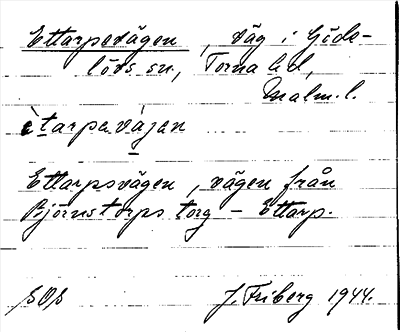 Ettarpsvägen, väg i Göde-
lövs sn, Torna hd,
Malm. l.
ètarpavàjan
Ettarpsvägen, vägen från
Björnstorps torg - Ettarp.
J. Friberg 1944.